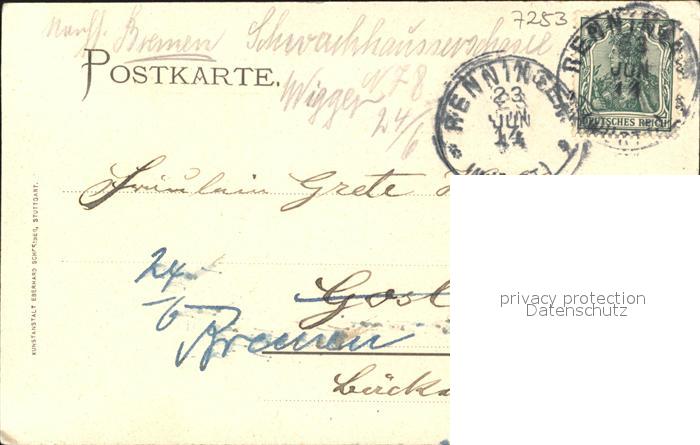 7253
Bremen Schwachhauserchaussee
N 78
Wigger
24/6
POSTKARTE.
RENNINGEN
23
JUN
14
RENNINGEN
JUN
14
DEUTSCHES REICH
Fräulein Grete
24
6
Gosl
Bremen
KUNSTANSTALT EBERHARD SCHREIBER, STUTTGART.
privacy protection
Datenschutz